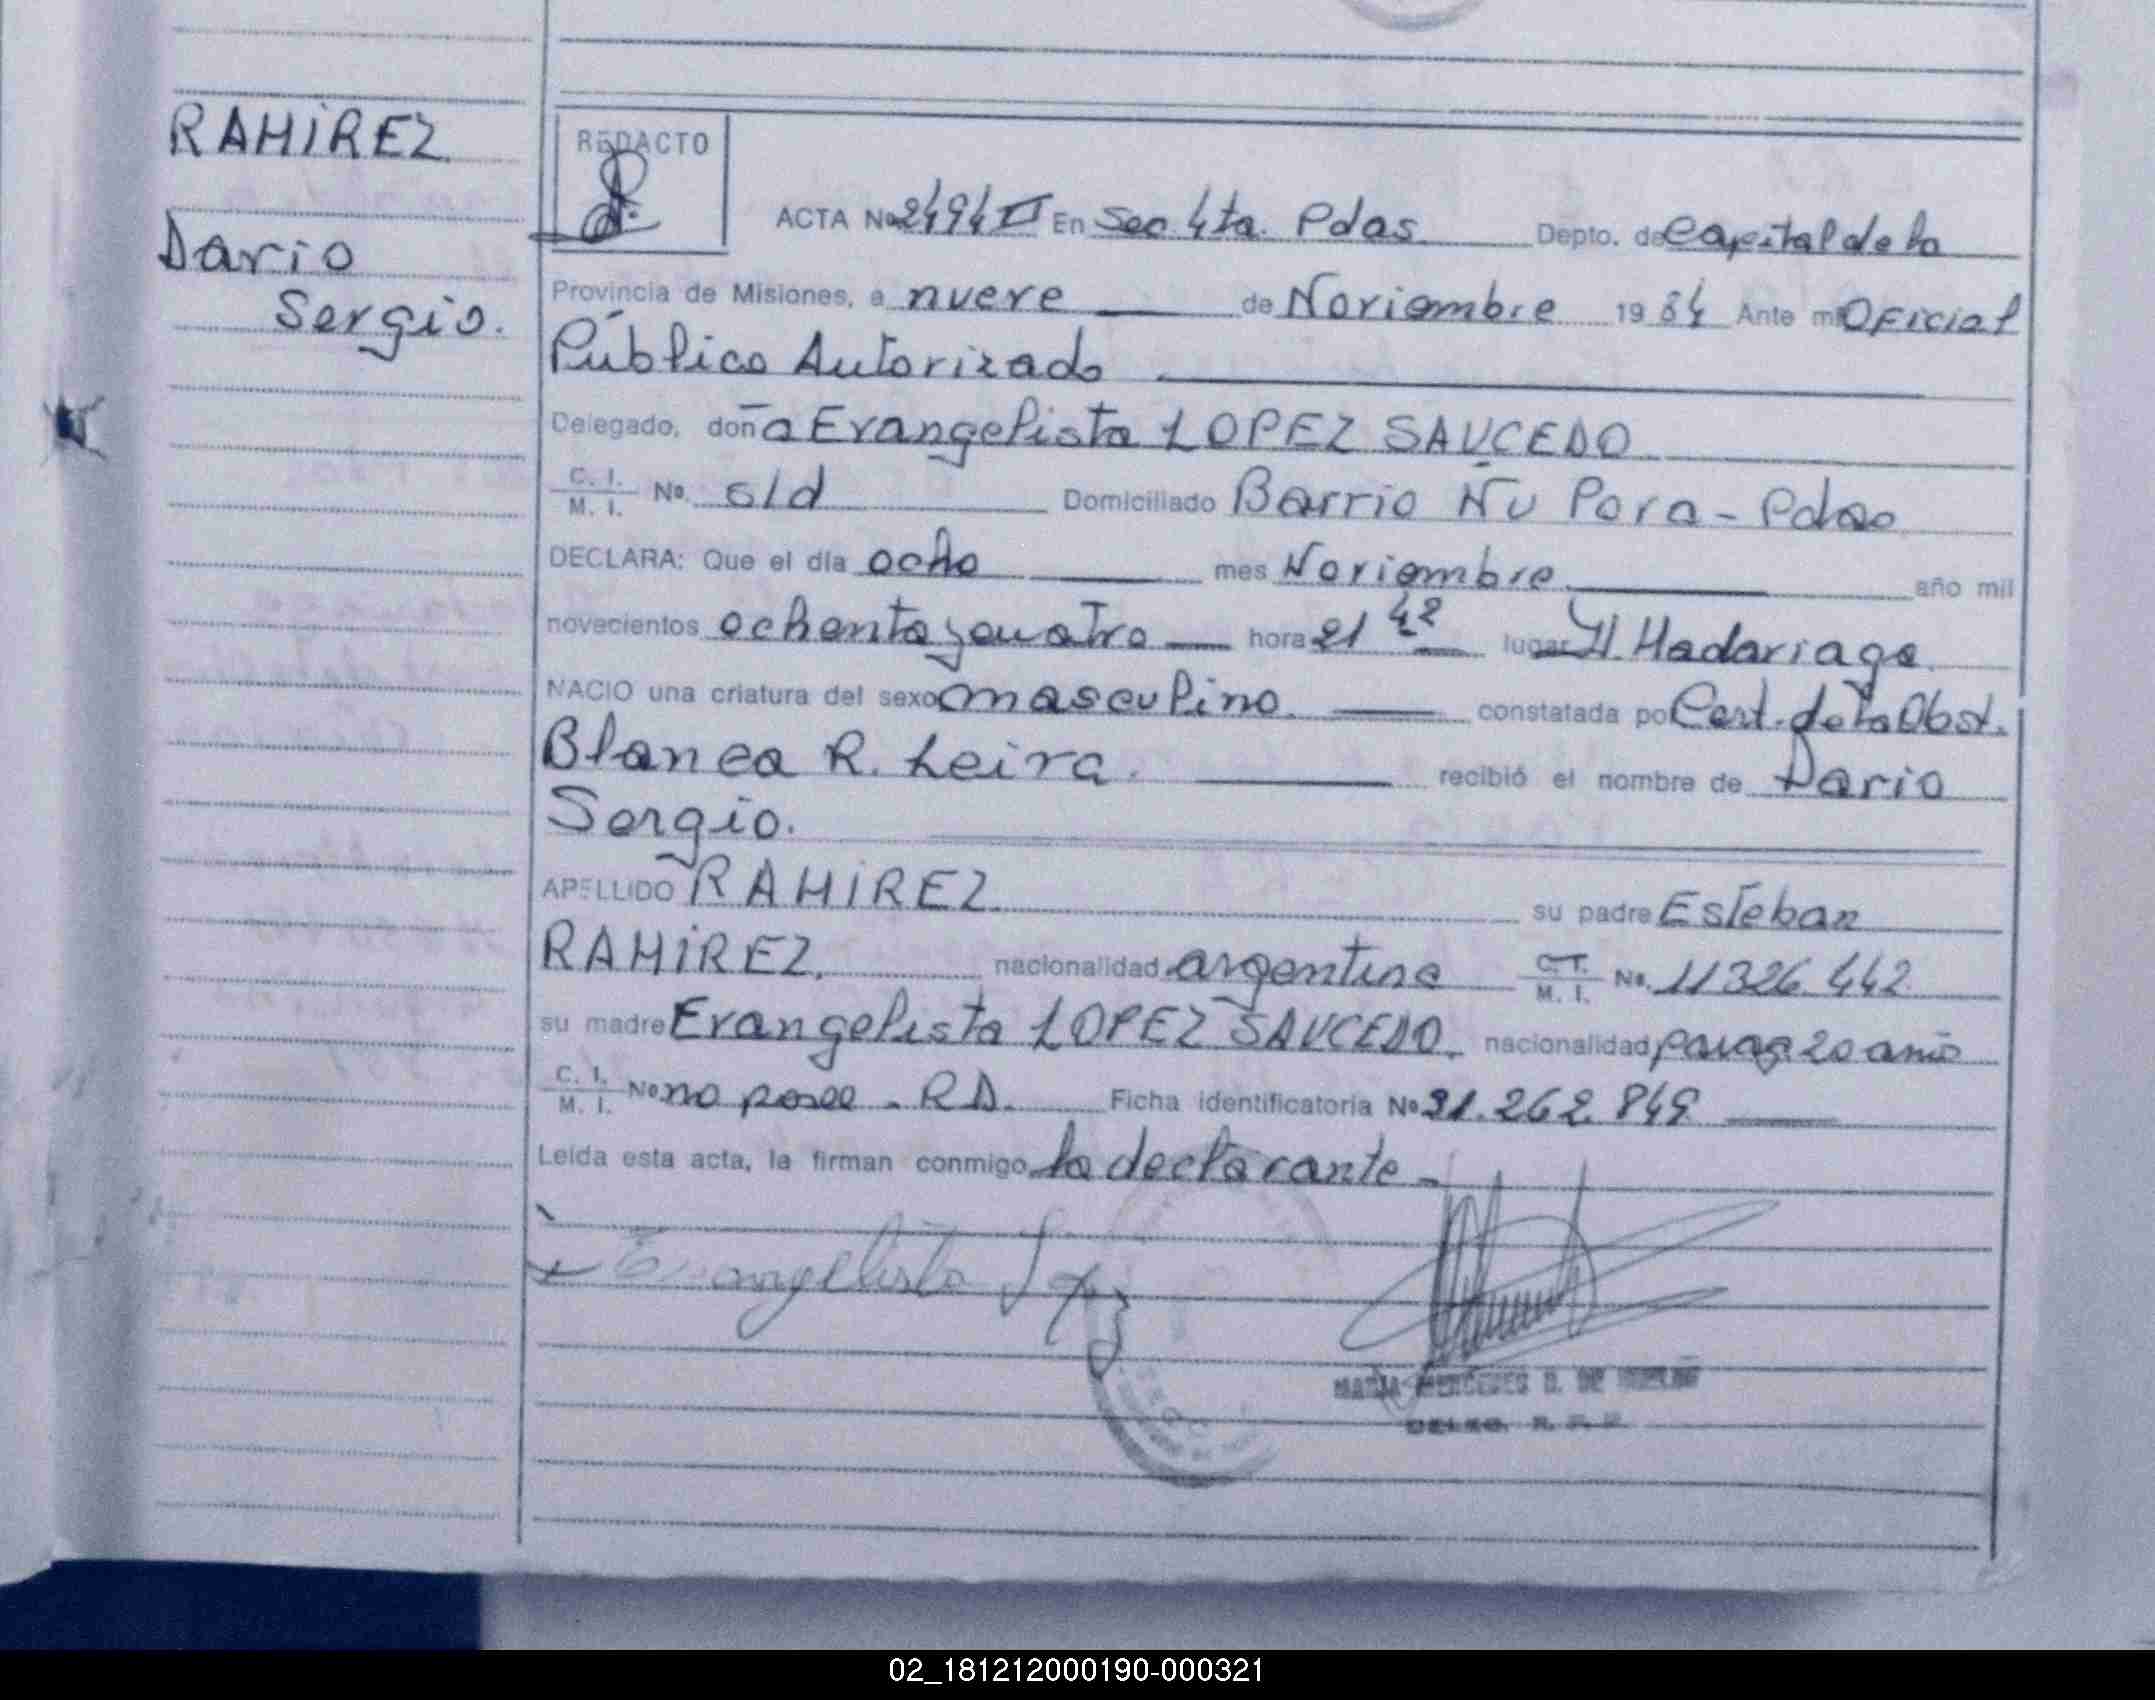 RAMIREZ
Dario
Sergio.
REDACTO
ACTA No 2494 II En Sec. 4ta. Pdas. Depto. de Capital de la
Provincia de Misiones, a nueve de Noviembre 1984 Ante mi Oficial
Público Autorizado
Delegado, doña Evangelista LOPEZ SAUCEDO
C. I. M. I. No. s/d Domiciliado Barrio Ñu Pora - Pdas
DECLARA: Que el día ocho mes Noviembre año mil
novecientos ochenta y cuatro hora 21 42 lugar H. Madariaga.
NACIO una criatura del sexo masculino. constatada por Cert. de la Obst.
Blanca R. Leira. recibió el nombre de Dario
Sergio.
APELLIDO RAMIREZ su padre Esteban
RAMIREZ. nacionalidad argentina C. I. M. I. No. 11326.442
su madre Evangelista LOPEZ SAUCEDO. nacionalidad parag 20 años
C. I. M. I. No no posee - RD. Ficha identificatoria No 31.262.849
Leída esta acta, la firman conmigo la declarante -
Evangelista Lopez
MARIA MERCEDES D. DE
DELEG. R. P. P.
02_181212000190-000321